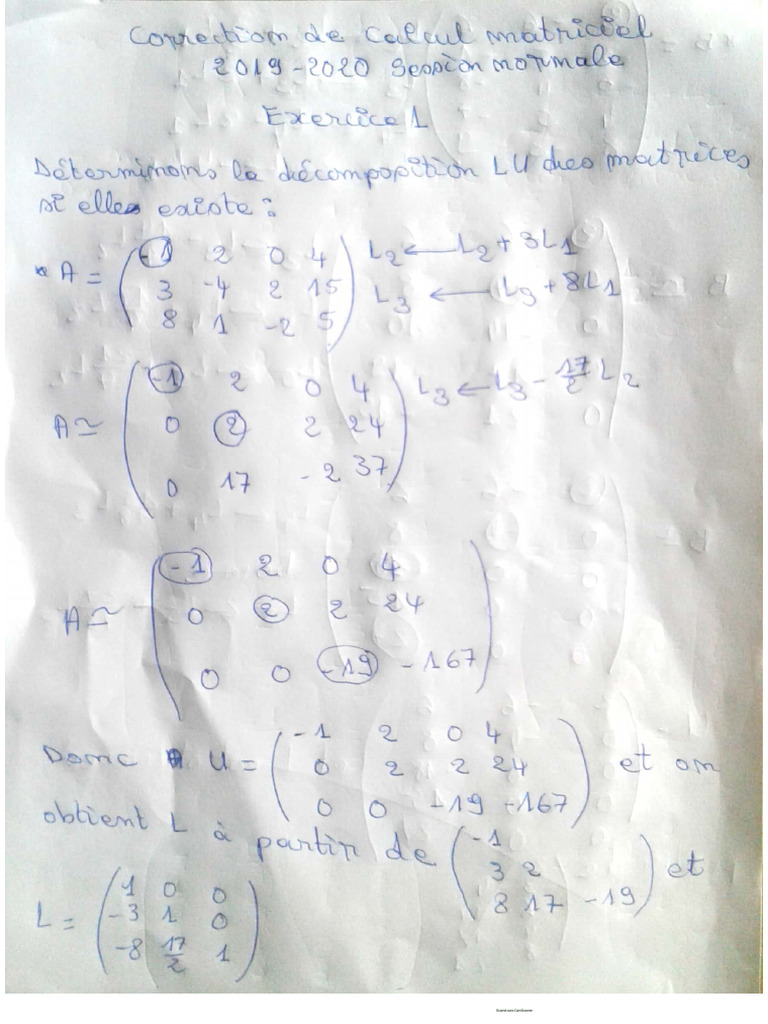 Correction de Calcul matriciel
2019-2020 Session normale
Exercice 1
Déterminons la décomposition LU des matrices
si elles existe :
* A = ( -1 2 0 4 ) L2 ← L2 + 3L1
( 3 -4 2 15 ) L3 ← L3 + 8L1
( 8 1 -2 5 )
A ≃ ( -1 2 0 4 ) L3 ← L3 - 17/2 L2
( 0 2 2 24 )
( 0 17 -2 37 )
A ≃ ( -1 2 0 4 )
( 0 2 2 24 )
( 0 0 -19 -167 )
Donc U = ( -1 2 0 4 ) et on
( 0 2 2 24 )
( 0 0 -19 -167 )
obtient L à partir de ( -1 ) et
( 3 2 )
( 8 17 -19 )
L = ( 1 0 0 )
( -3 1 0 )
( -8 17/2 1 )
Scanné avec CamScanner